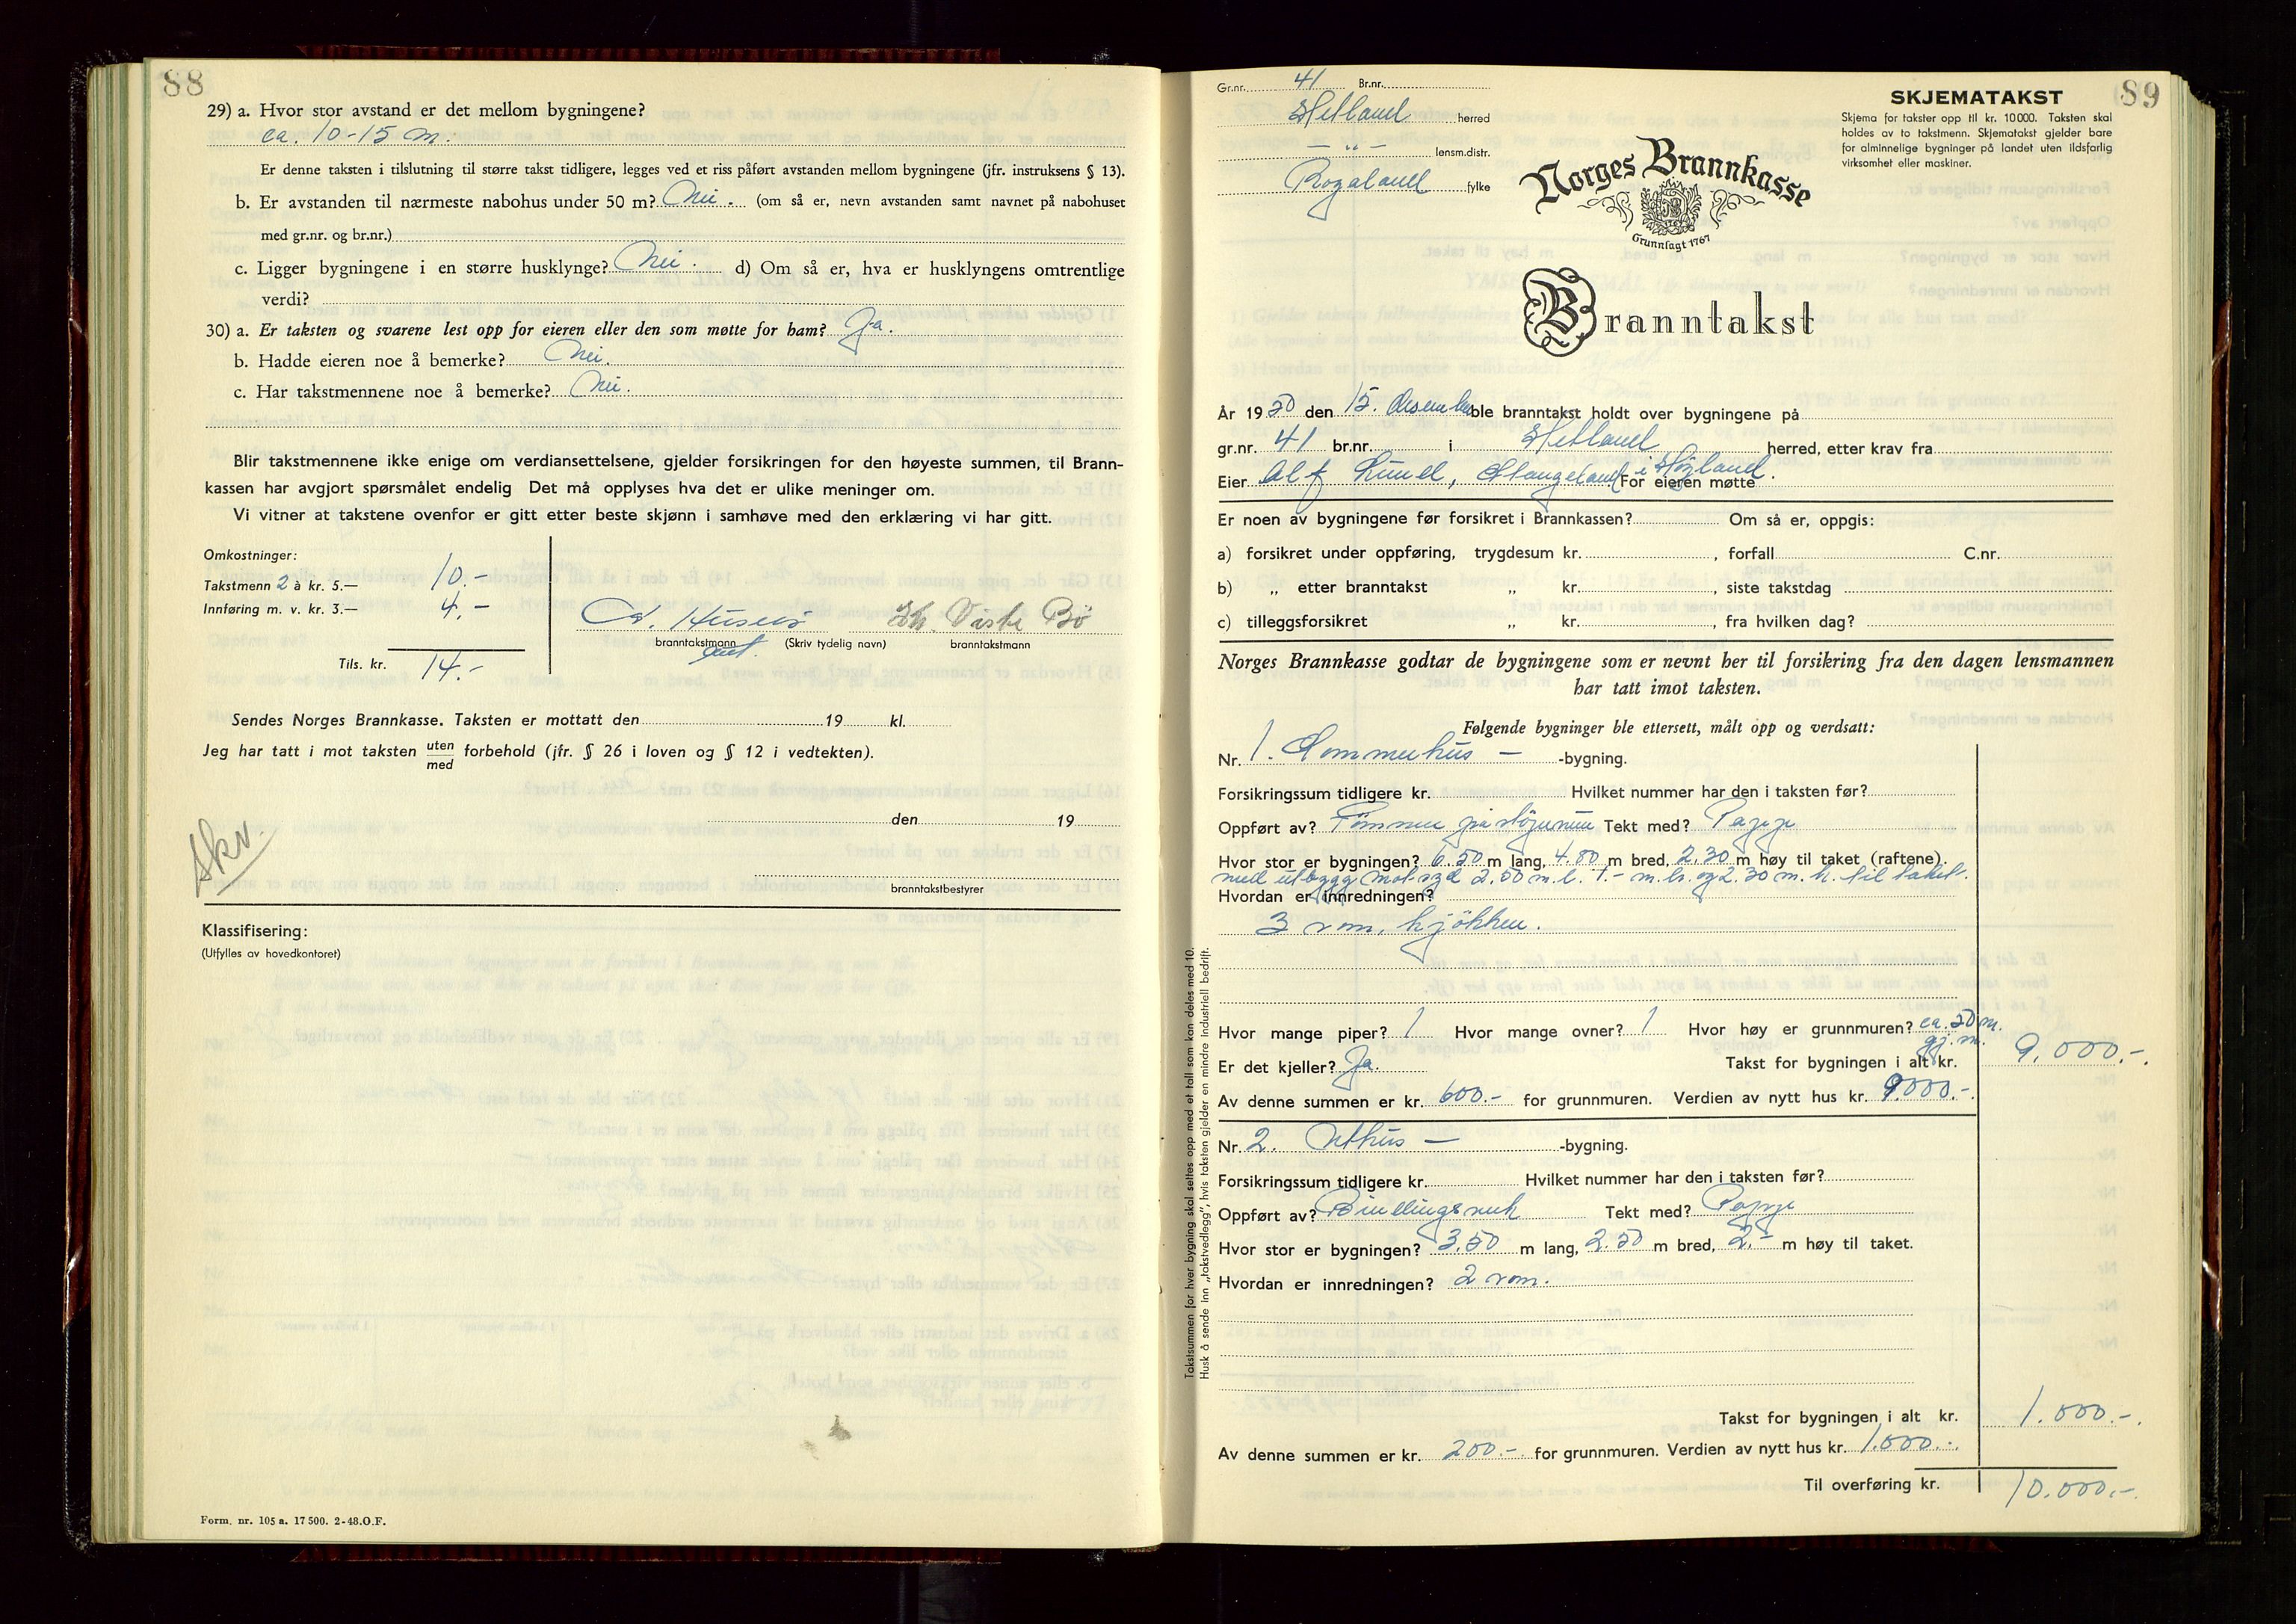 88
29) a. Hvor stor avstand er det mellom bygningene?
ca. 10-15 m.
Er denne taksten i tilslutning til større takst tidligere, legges ved et riss påført avstanden mellom bygningene (jfr. instruksens § 13).
b. Er avstanden til nærmeste nabohus under 50 m? Nei. (om så er, nevn avstanden samt navnet på nabohuset
med gr.nr. og br.nr.)
c. Ligger bygningene i en større husklynge? Nei. d) Om så er, hva er husklyngens omtrentlige
verdi?
30) a. Er taksten og svarene lest opp for eieren eller den som møtte for ham? Ja.
b. Hadde eieren noe å bemerke? Nei.
c. Har takstmennene noe å bemerke? Nei.
Blir takstmennene ikke enige om verdiansettelsene, gjelder forsikringen for den høyeste summen, til Brann-
kassen har avgjort spørsmålet endelig Det må opplyses hva det er ulike meninger om.
Vi vitner at takstene ovenfor er gitt etter beste skjønn i samhøve med den erklæring vi har gitt.
Omkostninger:
Takstmenn 2 à kr. 5.— 10.-
Innføring m. v. kr. 3.— 4.-
Th. Viste Bö
branntakstmann (Skriv tydelig navn) branntakstmann
Tils. kr. 14.-
Sendes Norges Brannkasse. Taksten er mottatt den 19 kl.
Jeg har tatt i mot taksten uten forbehold (jfr. § 26 i loven og § 12 i vedtekten).
med
den 19
Skv.
branntakstbestyrer
Klassifisering:
(Utfylles av hovedkontoret)
Form. nr. 105 a. 17 500. 2-48.O.F.
89
Gr.nr. 41 Br.nr.
Hetland herred
— " — lensm.distr.
Rogaland fylke
SKJEMATAKST
Skjema for takster opp til kr. 10 000. Taksten skal
holdes av to takstmenn. Skjematakst gjelder bare
for alminnelige bygninger på landet uten ildsfarlig
virksomhet eller maskiner.
Norges Brannkasse
Grunnlagt 1767
Branntakst
År 1950 den 15. desember ble branntakst holdt over bygningene på
gr.nr. 41 br.nr. i Hetland herred, etter krav fra
Eier Alf Lund, Stangeland i Höyland. For eieren møtte
Er noen av bygningene før forsikret i Brannkassen? Om så er, oppgis:
a) forsikret under oppføring, trygdesum kr. , forfall C.nr.
b) „ etter branntakst „ kr. , siste takstdag
c) tilleggsforsikret „ kr. , fra hvilken dag?
Norges Brannkasse godtar de bygningene som er nevnt her til forsikring fra den dagen lensmannen
har tatt imot taksten.
Følgende bygninger ble ettersett, målt opp og verdsatt:
Nr. 1. Sommerhus — -bygning.
Forsikringssum tidligere kr. Hvilket nummer har den i taksten før?
Oppført av? Tömmer på höy mur Tekt med? Papp
Hvor stor er bygningen? 6.50 m lang, 4.80 m bred, 2.30 m høy til taket (raftene).
med utbygg mot syd 2.50 m. l. 1.- m. br. og 2.30 m. h. til taket.
Hvordan er innredningen?
3 rom, kjökken.
Hvor mange piper? 1 Hvor mange ovner? 1 Hvor høy er grunnmuren? ca. 50 m.
gj. m.
Er det kjeller? Ja. Takst for bygningen i alt kr. 9.000.-
Av denne summen er kr. 600.- for grunnmuren. Verdien av nytt hus kr. 9.000.-
Nr. 2. Uthus — -bygning.
Forsikringssum tidligere kr. Hvilket nummer har den i taksten før?
Oppført av? Bindingsverk Tekt med? Papp
Hvor stor er bygningen? 3.50 m lang, 2.50 m bred, 2.- m høy til taket.
Hvordan er innredningen? 2 rom.
Takst for bygningen i alt kr. 1.000.-
Av denne summen er kr. 200.- for grunnmuren. Verdien av nytt hus kr. 1.000.-
Til overføring kr. 10.000.-
Takstsummen for hver bygning skal settes opp med et tall som kan deles med 10.
Husk å sende inn „takstvedlegg", hvis taksten gjelder en mindre industriell bedrift.